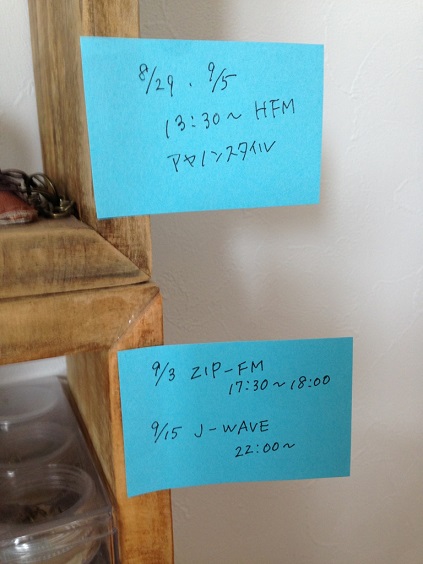 8/29、9/5
13:30〜 HFM
アヤノンスタイル
9/3 ZIP-FM
17:30〜18:00
9/15 J-WAVE
22:00〜